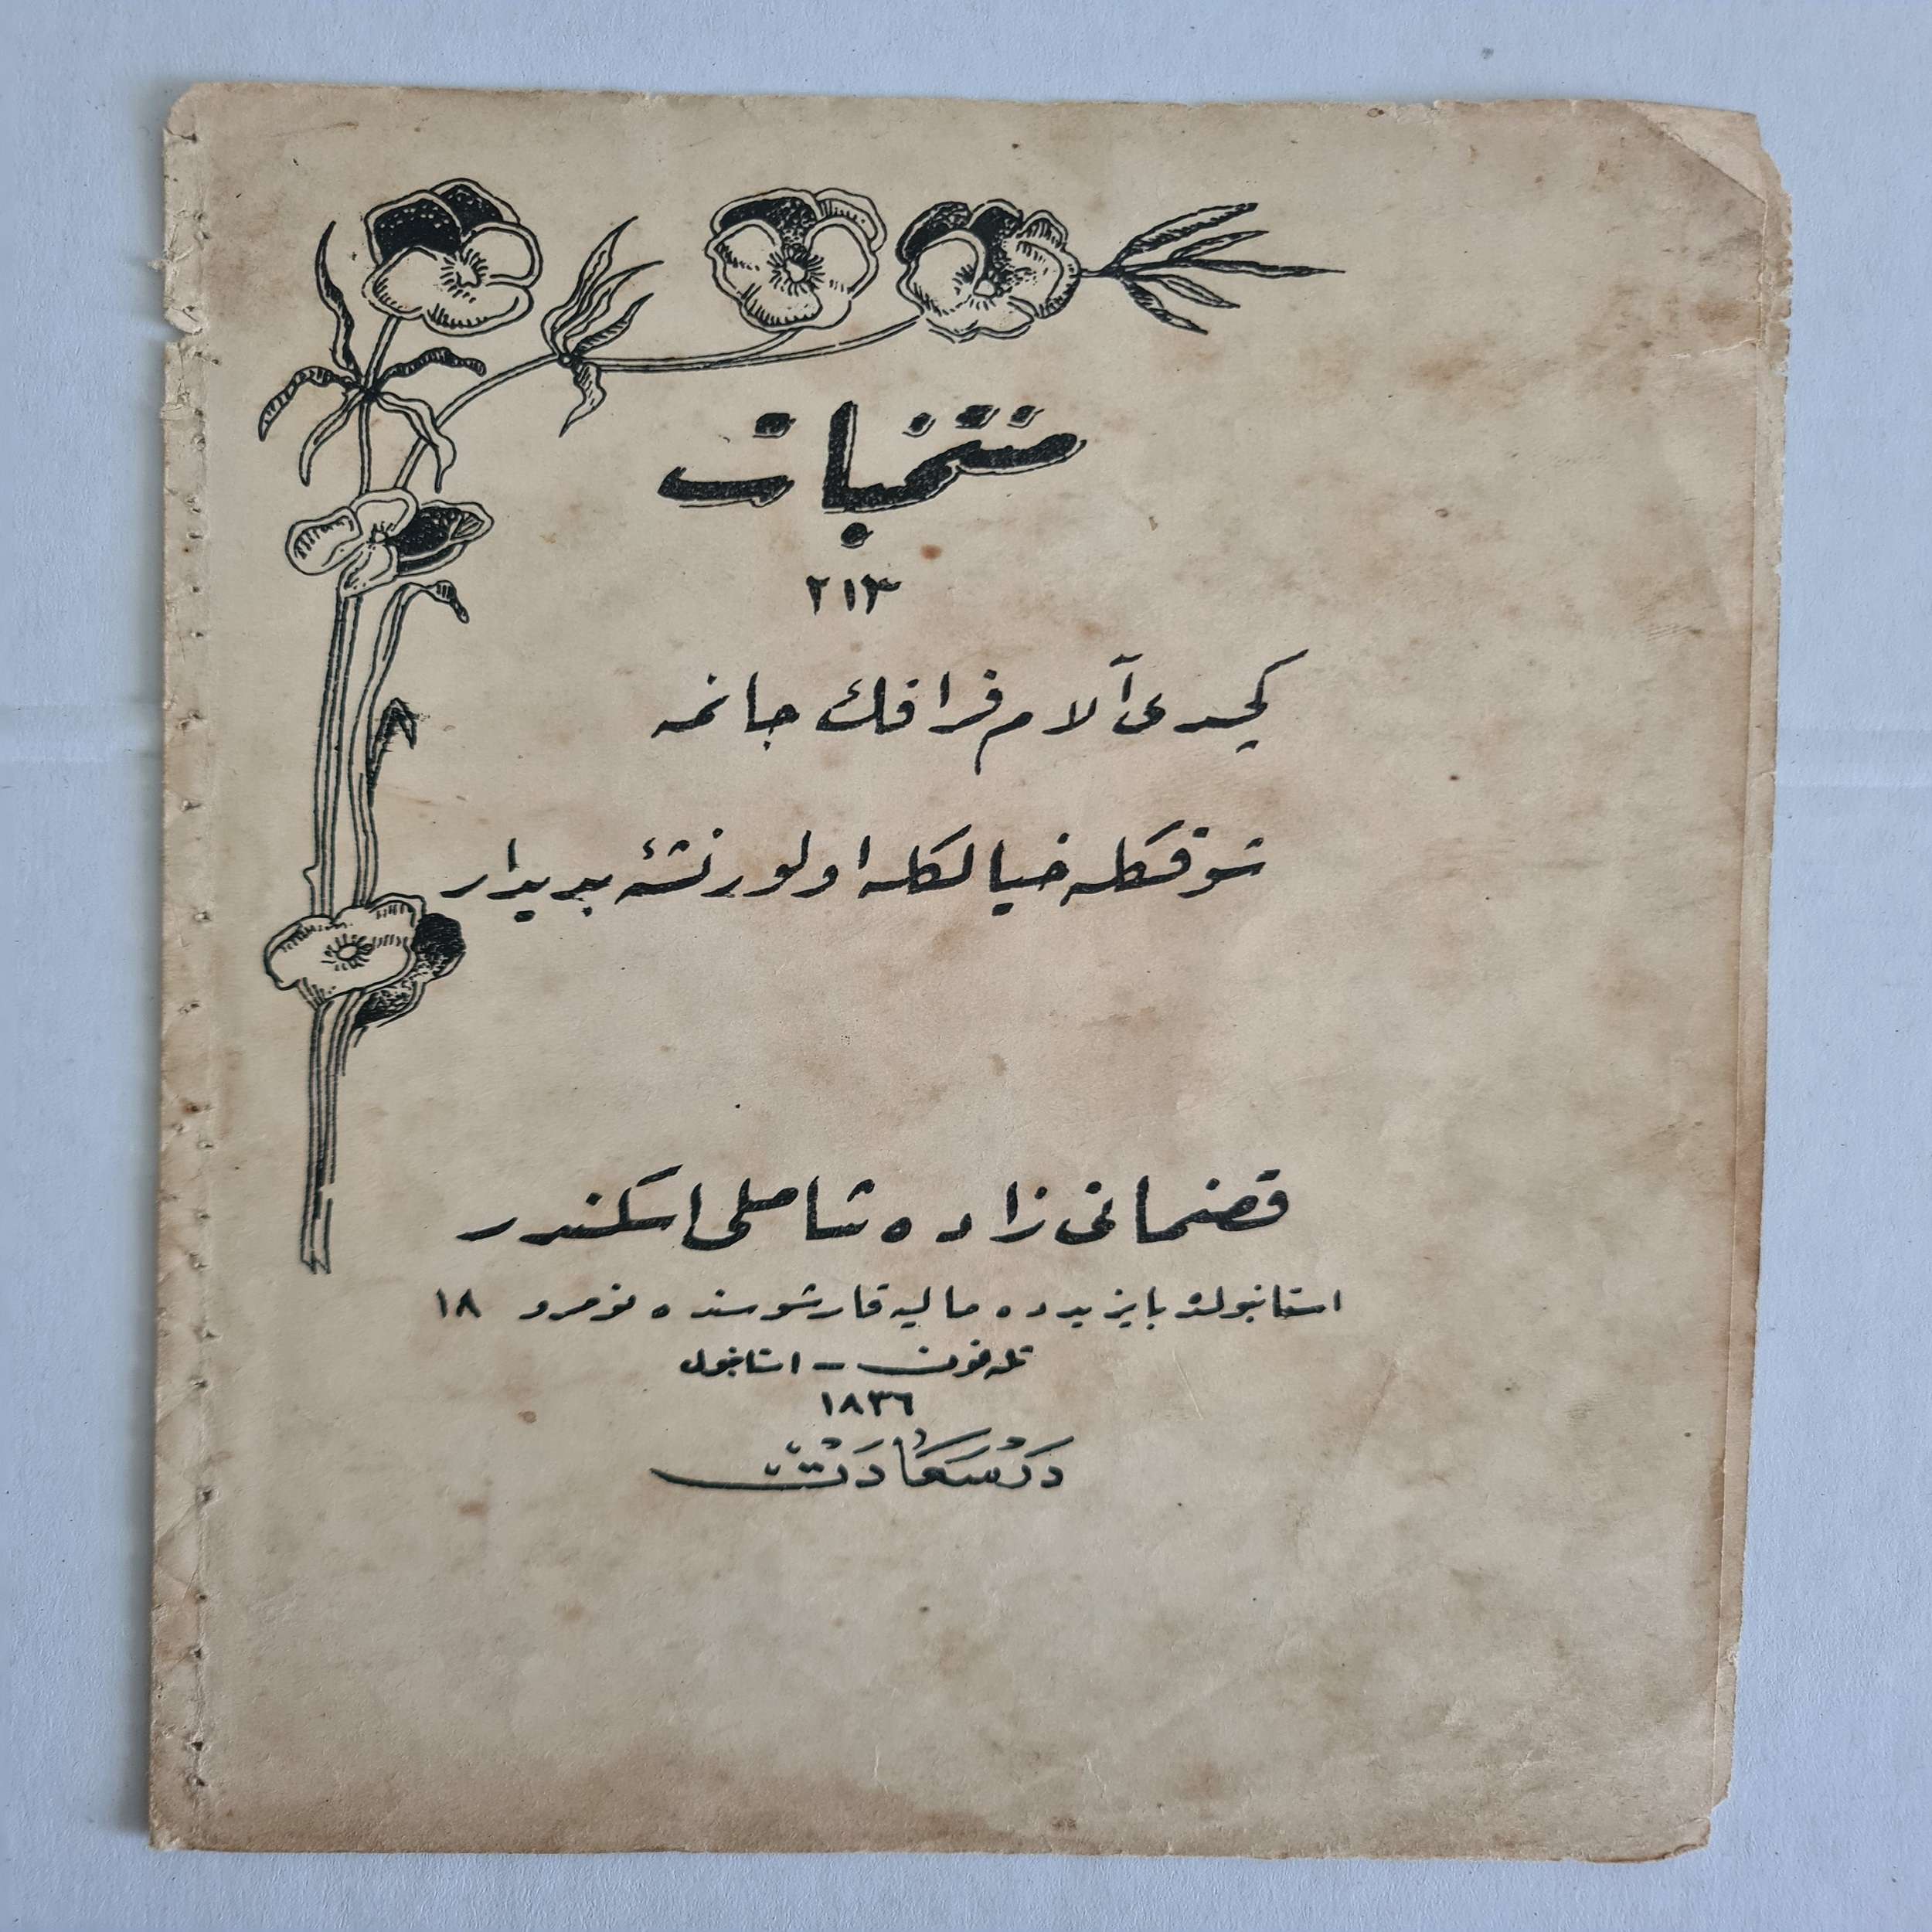 منتخبات
٢١٣
كچدی آلام فراقك جانمه
شوقكله خيالكله اولور نشئه بديدار
قضمانی زاده شاملی اسكندر
استانبولده بايزيدده ماليه قارشوسنده نومرو ١٨
تله فون — استانبول
١٨٣٦
درسعادت